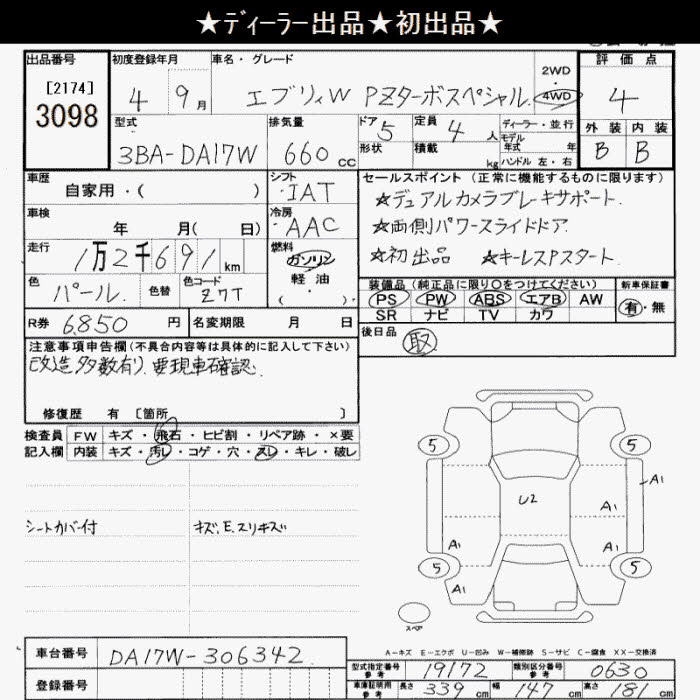 ★ﾃﾞｨｰﾗｰ出品★初出品★
出品番号 初度登録年月 車名・グレード 評価点
[2174]
3098
4 9月 エブリィW PZターボスペシャル 2WD 4WD 4
型式 排気量 ドア 定員 ディーラー・並行 外装 内装
3BA-DA17W 660cc 5 4人 モデル年式 年式 B B
形状 積載 kg ハンドル 左・右
車歴 シフト セールスポイント (正常に機能するものに限ります)
自家用・( ) IAT ☆デュアルカメラブレーキサポート.
車検 冷房 ☆両側パワースライドドア.
年 月( 日) AAC
走行 燃料 ☆初出品 ☆キーレスPスタート.
1万2千691km ガソリン・軽油・( )
色 色替 色コード 装備品 (純正品に限り○をつけてください) 新車保証書
パール. Z7T PS PW ABS エアB AW 有・無
SR ナビ TV カワ
R券 6,850円 名変期限 月 日 後日品
取
注意事項申告欄(不具合内容等は具体的に記入して下さい)
改造多数有り、要現車確認.
修復歴 有 〔箇所 〕
検査員 FW キズ・飛石・ヒビ割・リペア跡・×要
記入欄 内装 キズ・汚レ・コゲ・穴・スレ・キレ・破レ
5 5
A1
U2
A1
シートカバー付 キズ、E、スリキズ
A1 A1
5 5
A1 A1
スペア
A-キズ E-エクボ U-凹み W-補修跡 S-サビ C-腐食 XX-交換済
車台番号 DA17W-306342
型式指定番号 参考 19172 類別区分番号 参考 0630
登録番号 車庫証明用 参考 長さ 339cm 幅 147cm 高さ 181cm